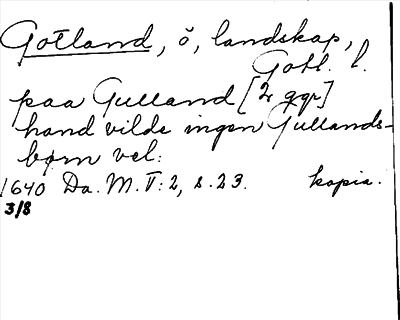 Gotland, ö, landskap,
Gotl. l.
paa Gulland [2 ggr]
hand vilde ingen Gullands-
børn vel:
1640 Da. M. V:2, s. 23. kopia.
3/8